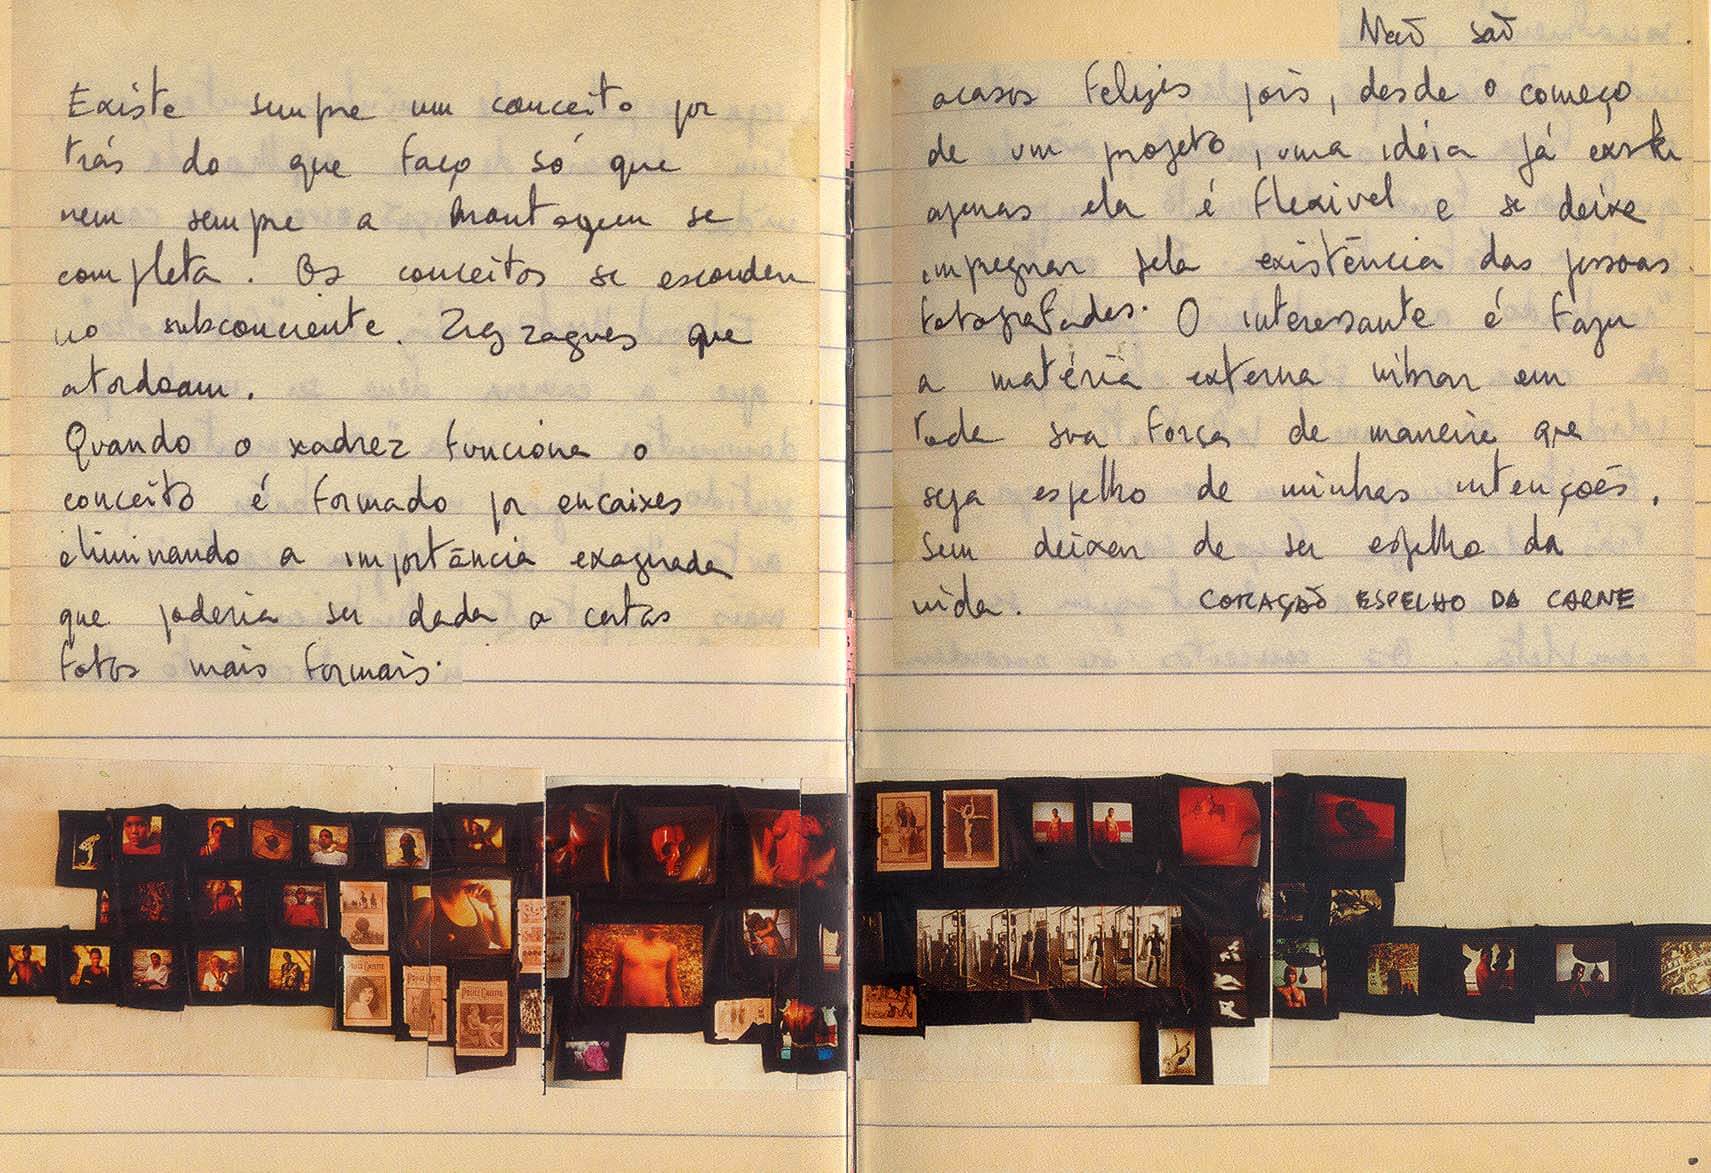 Existe sempre um conceito por
trás do que faço só que
nem sempre a montagem se
completa. Os conceitos se escondem
no subconciente. Zig zagues que
atordoam.
Quando o xadrez funciona o
conceito é formado por encaixes
eliminando a importância exagerada
que poderia ser dada a certas
fotos mais formais.
Não são
acasos felizes pois, desde o começo
de um projeto, uma idéia já existe
apenas ela é flexivel e se deixa
impregnar pela existência das pessoas
fotografadas. O interessante é fazer
a matéria externa vibrar em
toda sua força de maneira que
seja espelho de minhas intenções,
sem deixar de ser espelho da
vida. CORAÇÃO ESPELHO DA CARNE
POLICE GAZETTE
POLICE GAZETTE